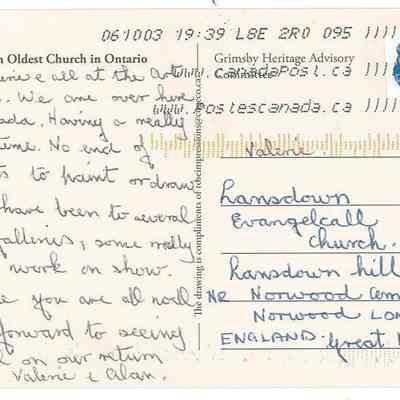 061003 19:39 L8E 2R0 095
n Oldest Church in Ontario
Grimsby Heritage Advisory
Committee
www.canadapost.ca
www.postescanada.ca
erie e all at the Art
. We are over here
ada. Having a really
time. No end of
ts to paint or draw
have been to several
galleries, some really
work on show.
e you are all well
forward to seeing
l on our return
Valerie e Alan.
The drawing is compliments of
Valerie.
Lansdown
Evangelcall
Church.
Lansdown hill
NR Norwood Cem
Norwood LON
ENGLAND. Great